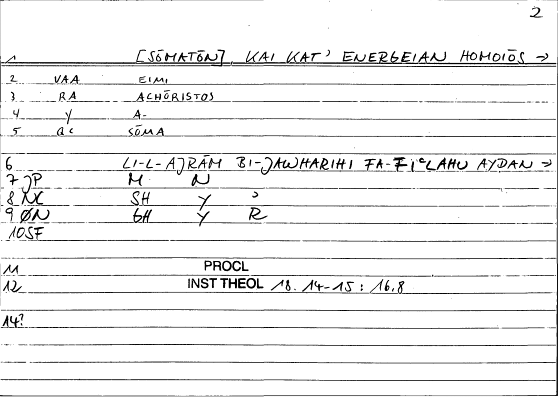 2
1 [SŌMATŌN], KAI KAT' ENERGEIAN HOMOIŌS →
2 VAA EIMI
3 RA ACHŌRISTOS
4 y A-
5 ac SŌMA
6 LI-L-AJRĀM BI-JAWHARIHI FA-FIʿLAHU AYDAN →
7 JP M N
8 NC SH y ʾ
9 ØN GH y R
10 SF
11 PROCL
12 INST THEOL 18.14-15 : 16,8
14?